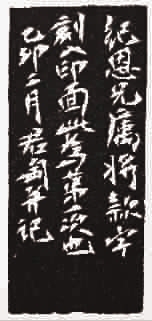 纪恩兄属将款字
刻入印面此为第一次也
乙卯二月君匋并记